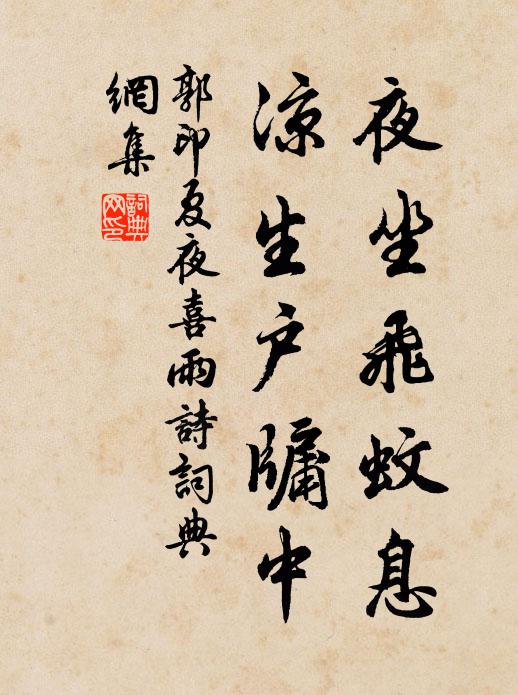 夜坐飛蚊息
涼生户牖中
郭印夏夜喜雨詩詞典
網集
詞典
网印